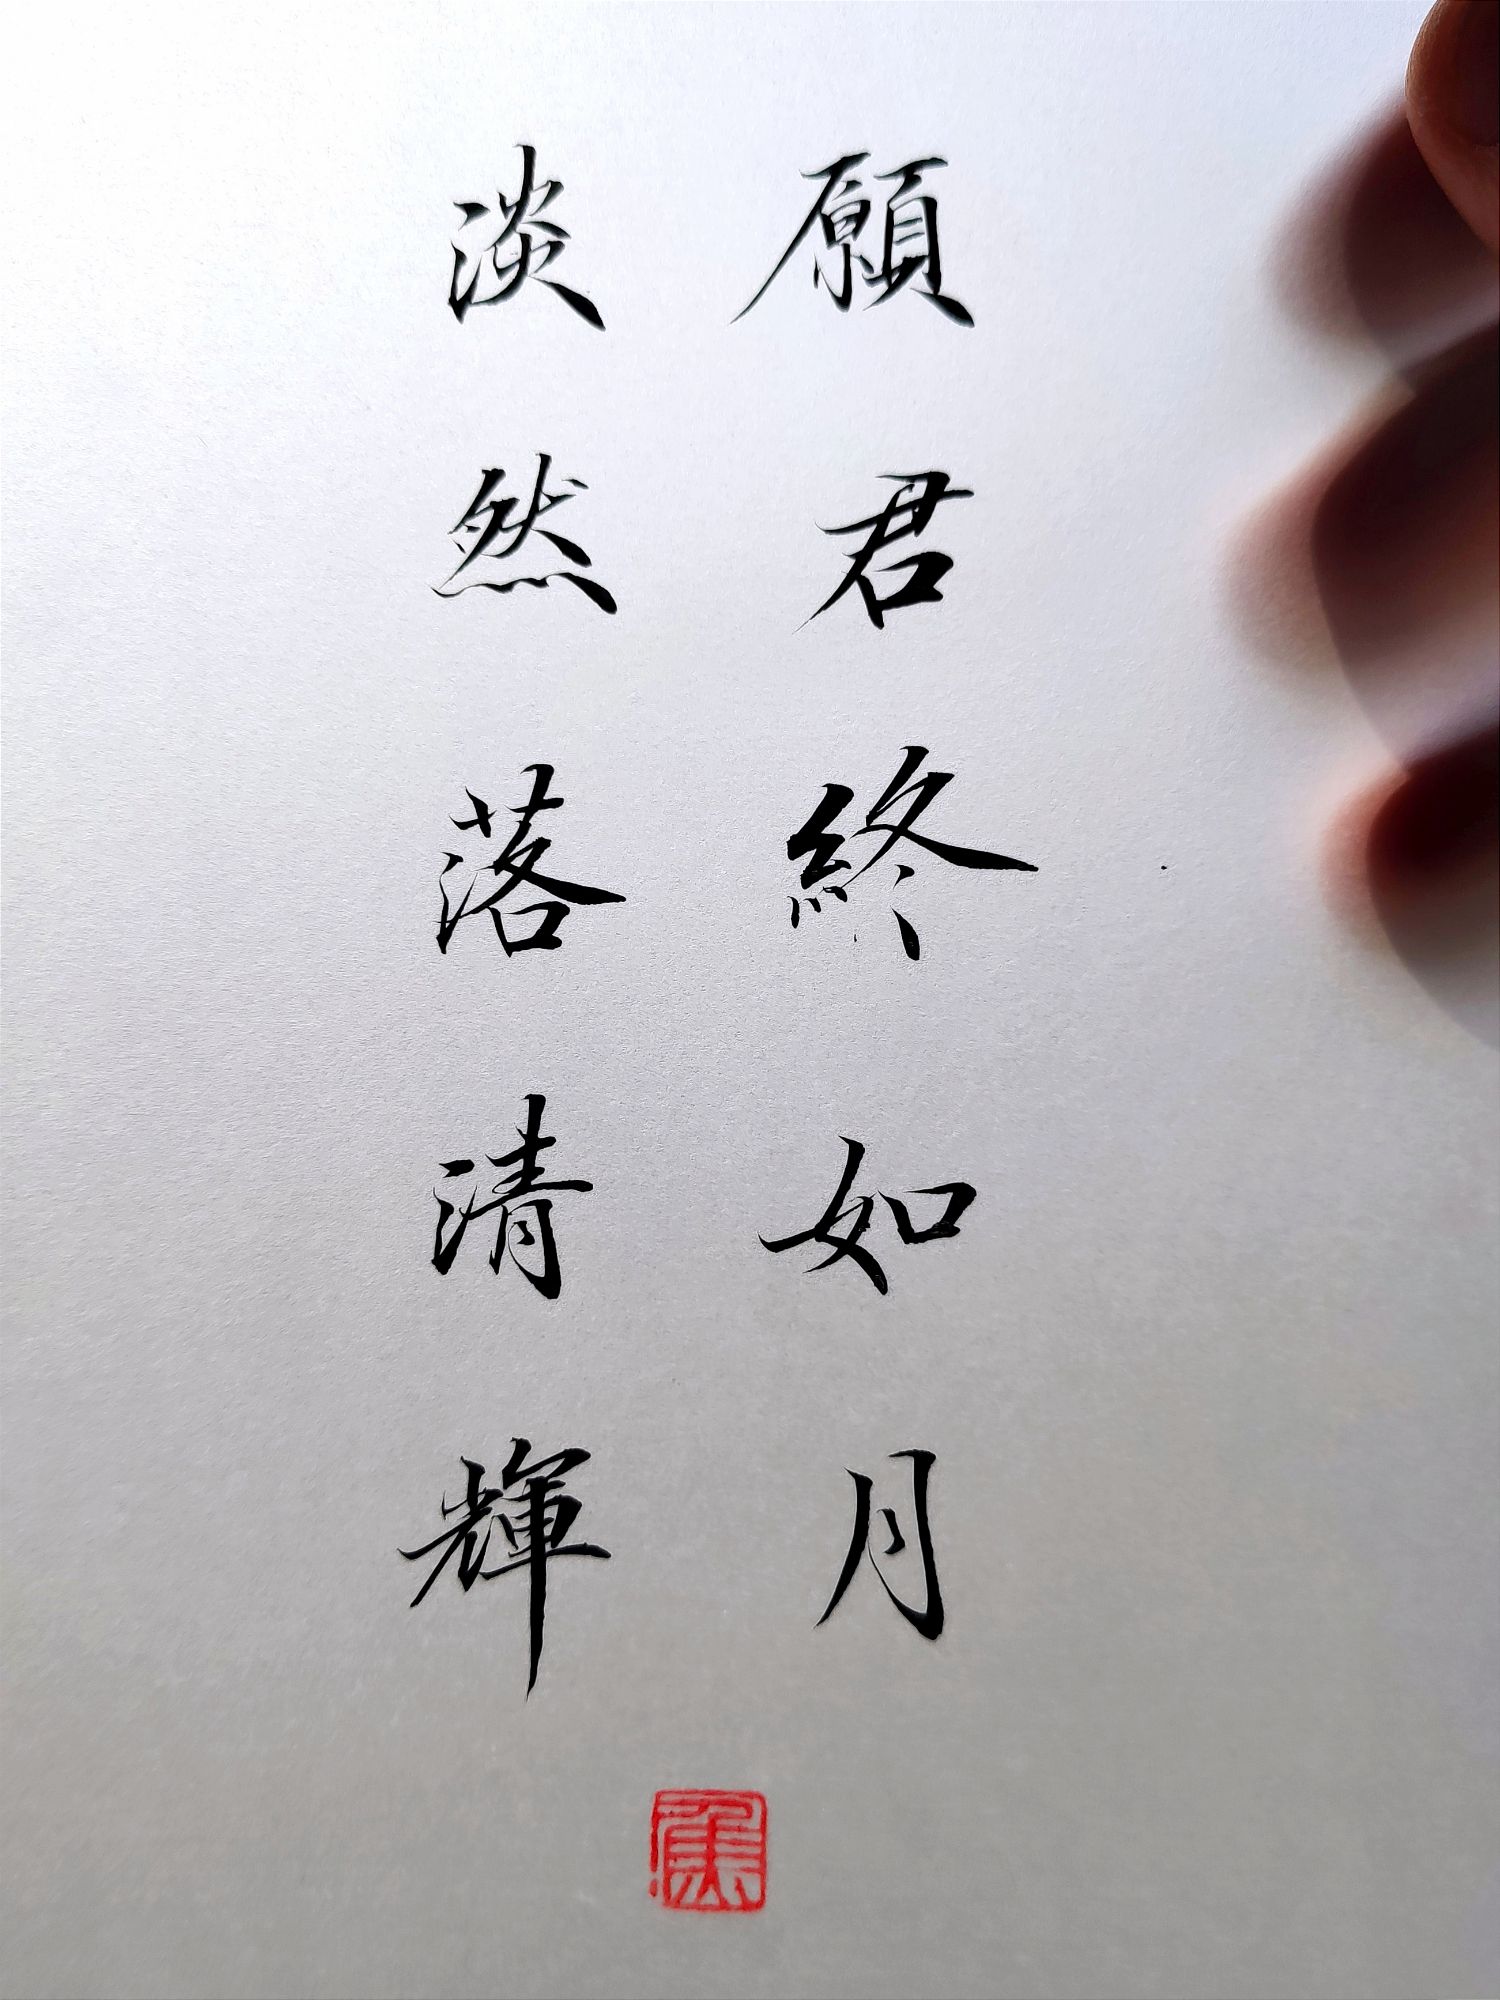 願君終如月
淡然落清輝